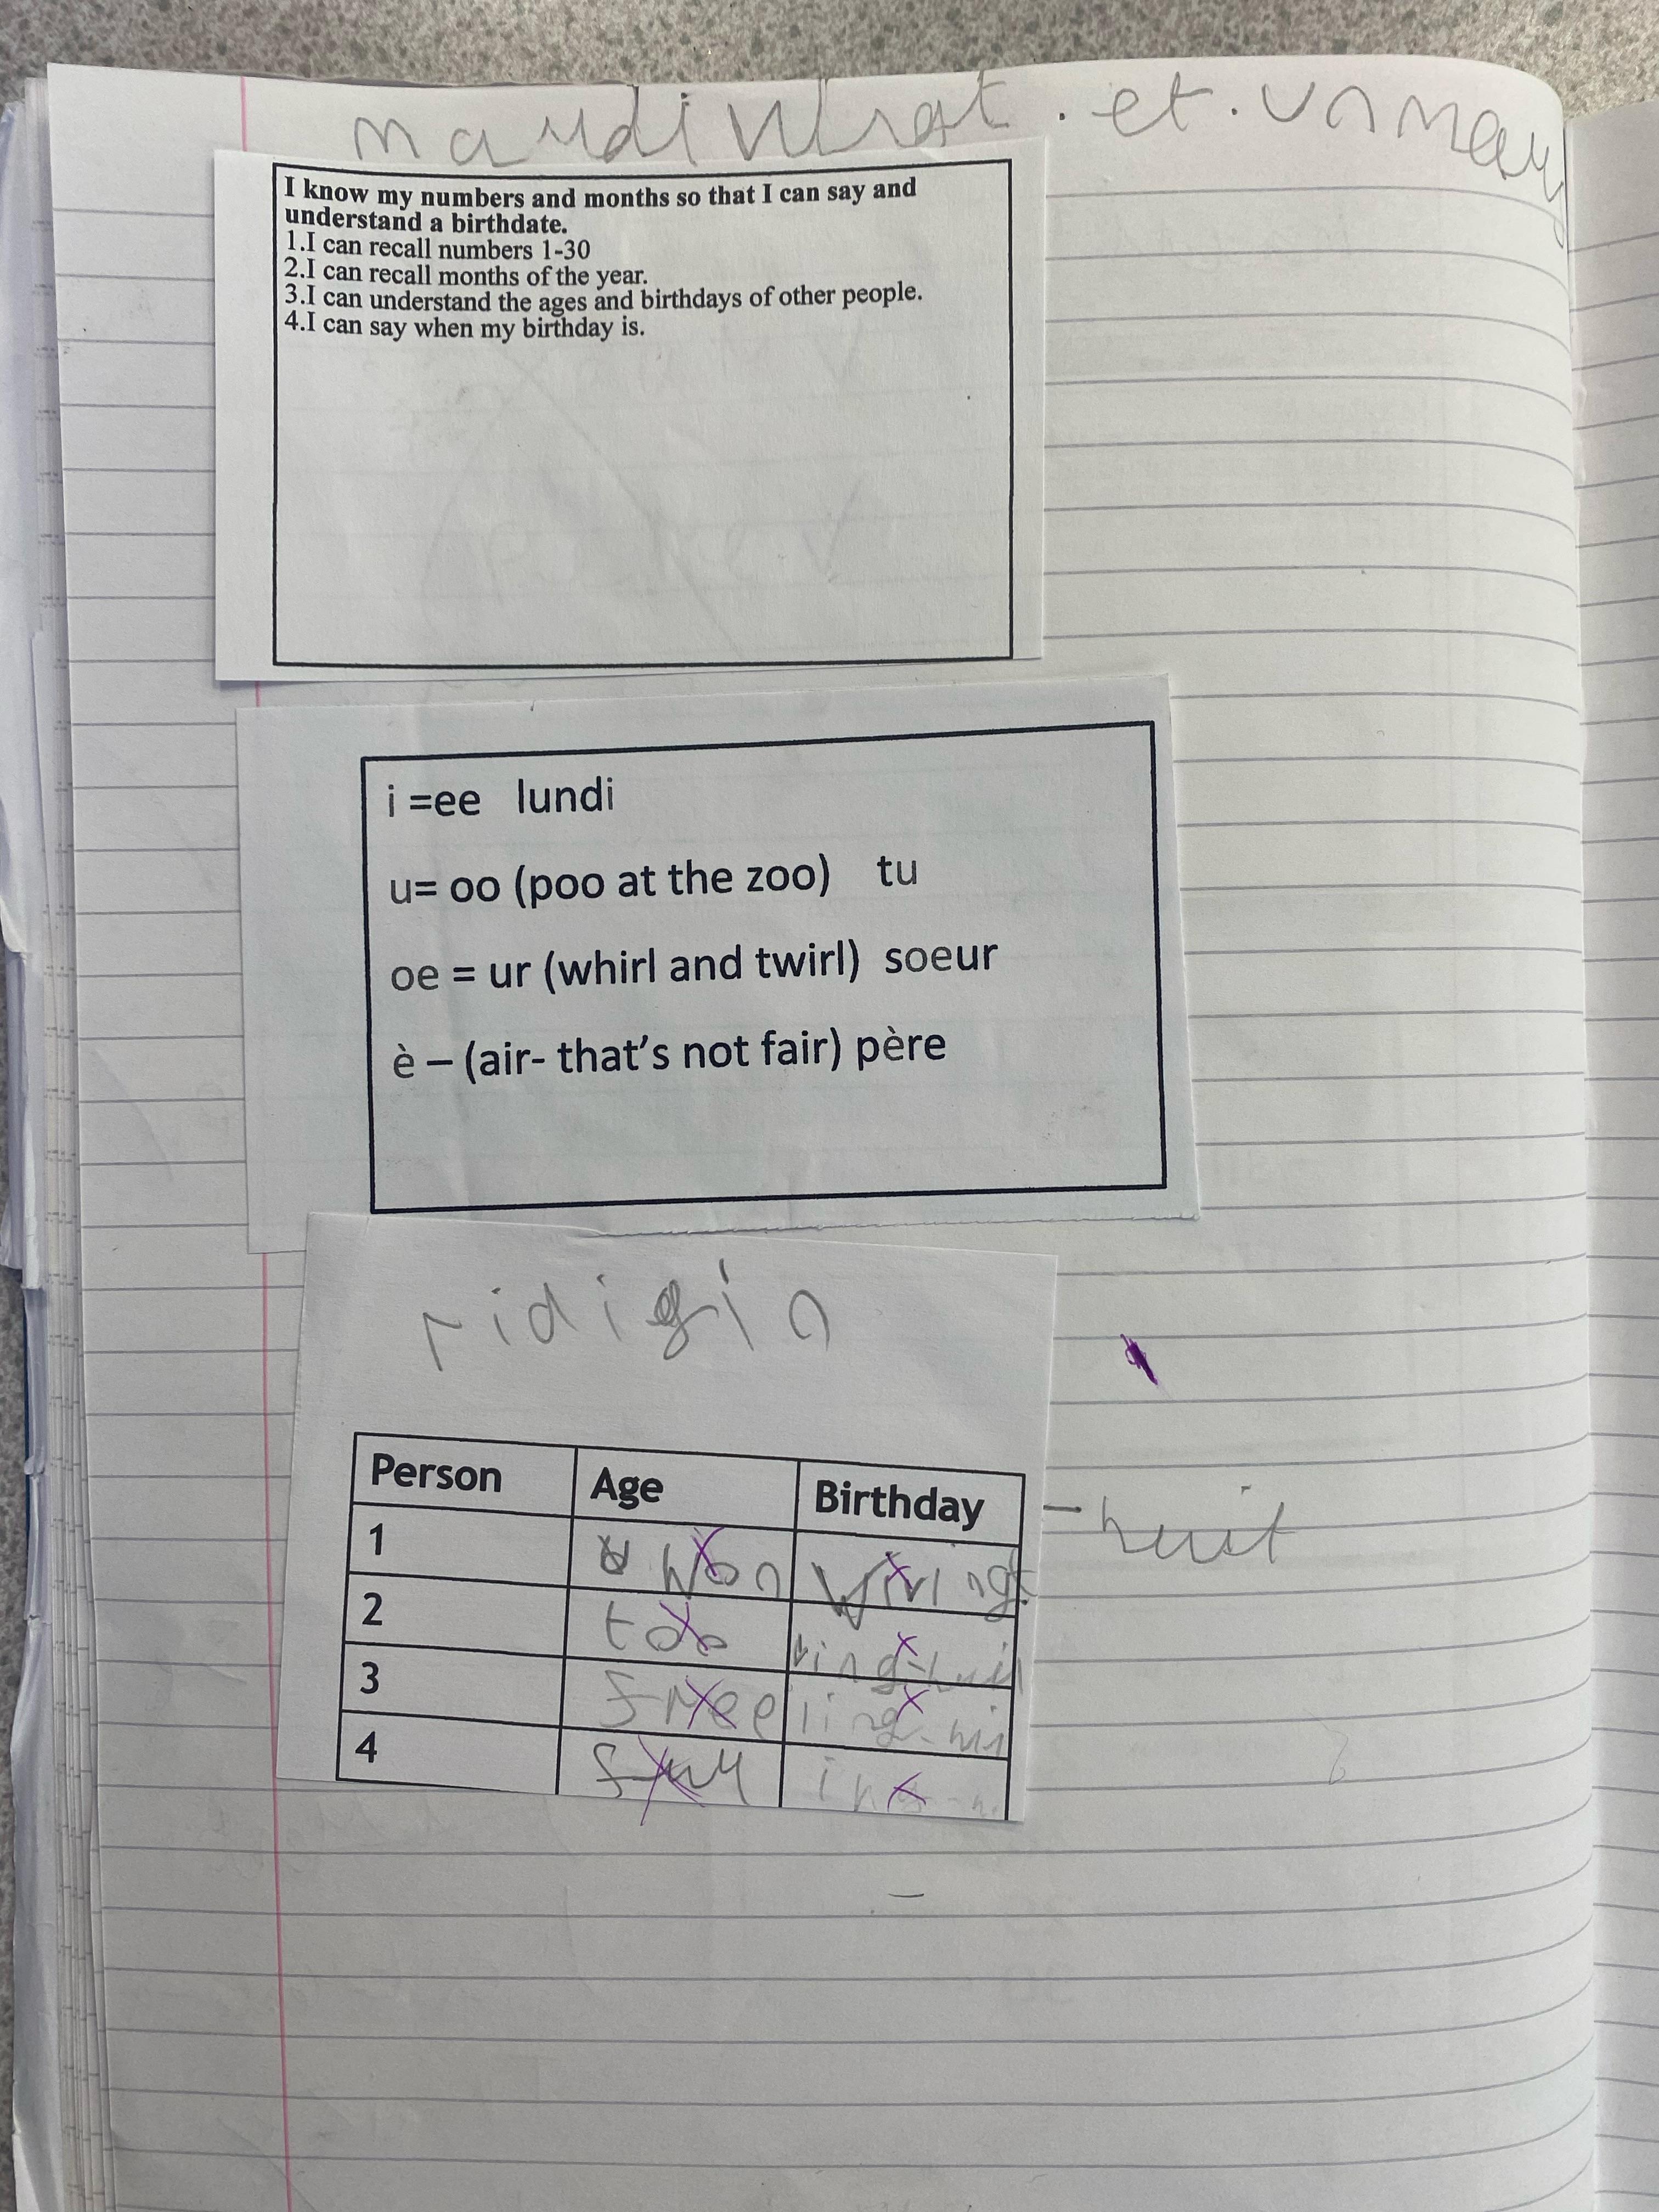 mardi et un
I know my numbers and months so that I can say and
understand a birthdate.
1.I can recall numbers 1-30
2.I can recall months of the year.
3.I can understand the ages and birthdays of other people.
4.I can say when my birthday is.
i =ee lundi
u= oo (poo at the zoo) tu
oe = ur (whirl and twirl) soeur
è – (air- that's not fair) père
ridigin
Person Age Birthday - huit
1 won
2 too
3 free
4